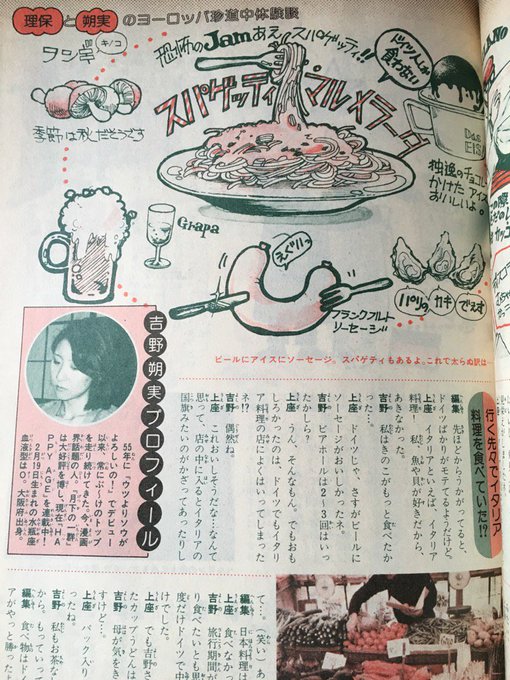 理保と朔実のヨーロッパ珍道中体験談
キノコ
季節は秋だそうです
恐怖のJamあえスパゲッティ!!
スパゲッティマルメラーダ
ドイツ人しか食わない
Das
EIS
独逸のチョコレートかけたアイス
おいしいよ。
Grapa
えぐいっ
フランクフルト
ソーセージ
パリのカキでぇす
ビールにアイスにソーセージ。スパゲティもあるよ。これで太らぬ訳は―
行く先々でイタリア
料理を食べていた!?
編集 先ほどからうかがってると、
ドイツばかりがモテてるようだけど。
上座 イタリアといえば、イタリア
料理！私、魚や貝が好きだから、
あきなかった。
吉野 私はきのこがもっと食べたか
った…。
上座 ドイツじゃ、さすがビールに
ソーセージがおいしかったネ。
吉野 ビアホールは2〜3回はいっ
たかしら？
上座 うん、そんなもん。でもおも
しろかったのは、ドイツでもイタリ
ア料理の店によくはいってしまった
ネ!?
吉野 偶然ね。
上座 これおいしそうだな…なんて
思って、店の中に入るとイタリアの
国旗みたいのがかざってあったりし
吉野朔実プロフィール
55年に「ウツよりソウが
よろしいの！」でデビュー
以来、常にぶ〜けのトップ
を走り続けてきた。今、漫画
界話題の人。「月下の一群」
は大好評を博し、現在「HA
PPY AGE」を連載中！
2月19日生まれの水瓶座
血液型はO。大阪府出身。
て…（笑い）あ
編集 日本料理は
上座 食べなかっ
吉野 旅行期間が
り食べたいとも思
度だけドイツで中
けでした。
上座 でも吉野さ
たカップうどんは
吉野 母が気をき
すけど…。
上座 パック入り
ったね。
吉野 私もお茶な
から、もっていって
編集 食べ物はド
アがやっと勝ったよ